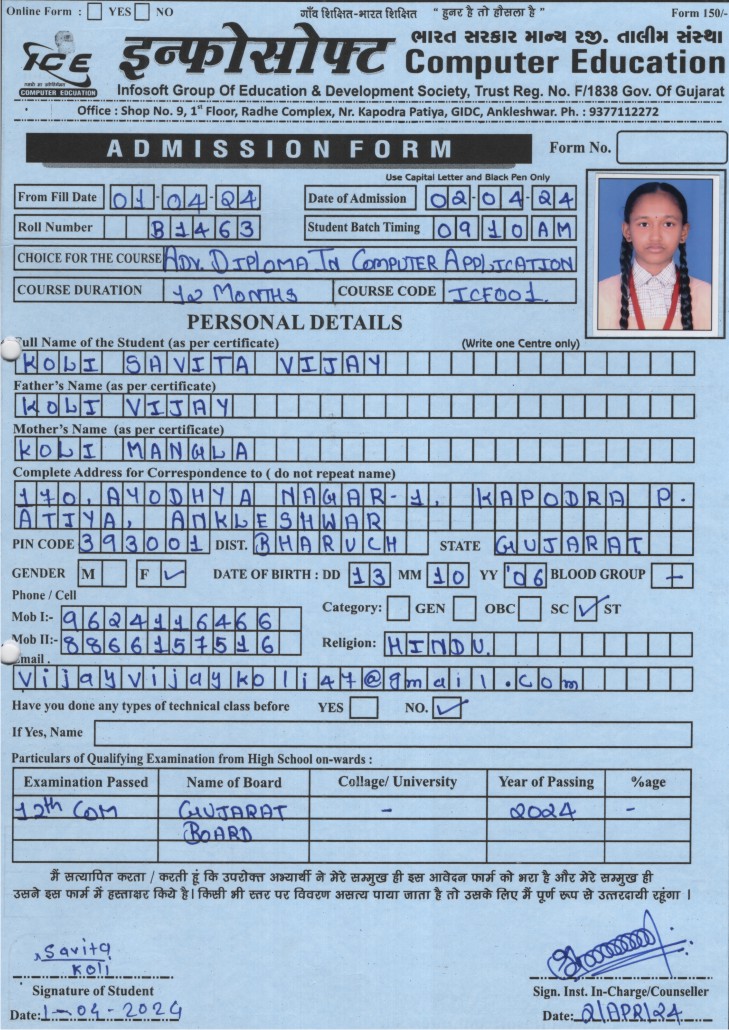 Online Form : YES NO गाँव शिक्षित-भारत शिक्षित " हुनर है तो हौसला है " Form 150/-
ICE इन्फोसोफ्ट ભારત સરકાર માન્ય રજી. તાલીમ સંસ્થા
COMPUTER EDUCATION Computer Education
Infosoft Group Of Education & Development Society, Trust Reg. No. F/1838 Gov. Of Gujarat
Office : Shop No. 9, 1st Floor, Radhe Complex, Nr. Kapodra Patiya, GIDC, Ankleshwar. Ph. : 9377112272
ADMISSION FORM Form No.
Use Capital Letter and Black Pen Only
From Fill Date 01-04-24 Date of Admission 02-04-24
Roll Number B1463 Student Batch Timing 0910AM
CHOICE FOR THE COURSE ADV. DIPLOMA IN COMPUTER APPLICATION
COURSE DURATION 12 MONTHS COURSE CODE ICF001.
PERSONAL DETAILS
Full Name of the Student (as per certificate) (Write one Centre only)
KOLI SAVITA VIJAY
Father's Name (as per certificate)
KOLI VIJAY
Mother's Name (as per certificate)
KOLI MANGLA
Complete Address for Correspondence to ( do not repeat name)
170, AYODHYA NAGAR-1, KAPODRA P.
ATIYA, ANKLESHWAR
PIN CODE 393001 DIST. BHARUCH STATE GUJARAT
GENDER M F ✓ DATE OF BIRTH : DD 13 MM 10 YY '06 BLOOD GROUP +
Phone / Cell
Mob I:- 9624116466 Category: GEN OBC SC ✓ ST
Mob II:- 8866157516 Religion: HINDU.
Email .
vijayvijaykoli47@gmail.com
Have you done any types of technical class before YES NO. ✓
If Yes, Name
Particulars of Qualifying Examination from High School on-wards :
Examination Passed Name of Board Collage/ University Year of Passing %age
12th COM GUJARAT - 2024 -
BOARD
मैं सत्यापित करता / करती हूं कि उपरोक्त अभ्यार्थी ने मेरे सम्मुख ही इस आवेदन फार्म को भरा है और मेरे सम्मुख ही
उसने इस फार्म में हस्ताक्षर किये है। किसी भी स्तर पर विवरण असत्य पाया जाता है तो उसके लिए मैं पूर्ण रूप से उत्तरदायी रहूंगा ।
Savita
Koli
Signature of Student Sign. Inst. In-Charge/Counseller
Date: 1-04-2024 Date: 2/APR/24